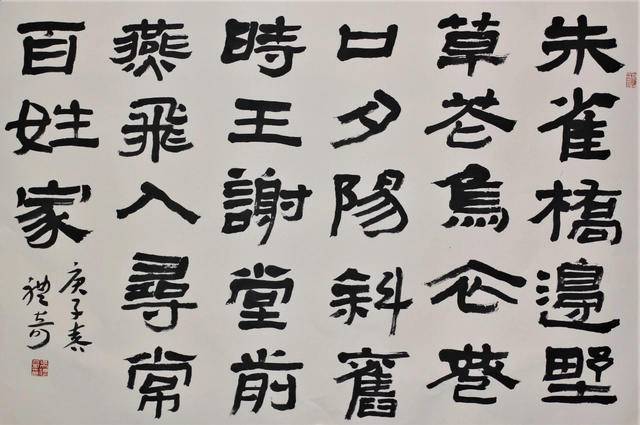 朱雀橋邊野
草花烏衣巷
口夕陽斜舊
時王謝堂前
燕飛入尋常
百姓家
庚子春
奇